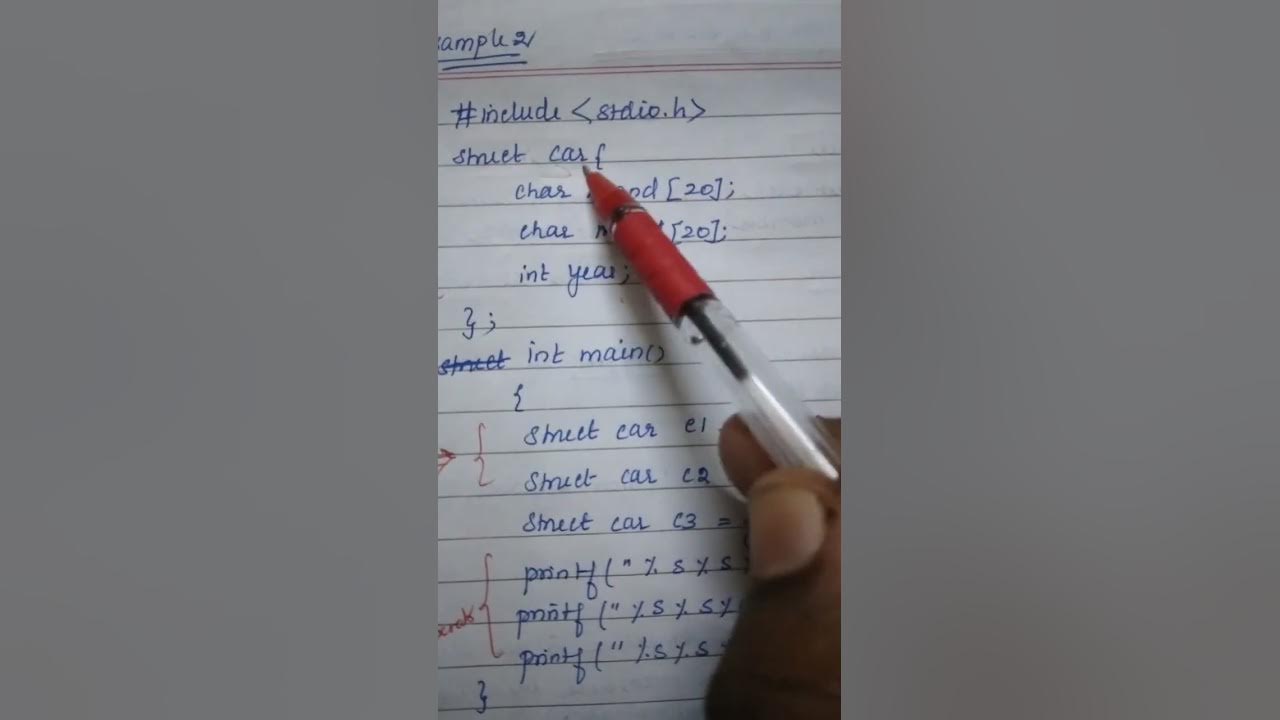 ample 2
#include <stdio.h>
struct car{
char [20];
char [20];
int year;
};
struct int main()
{
struct car c1
struct car c2
struct car c3 =
printf("%s %s
printf("%s %s %
printf("%s %s
}